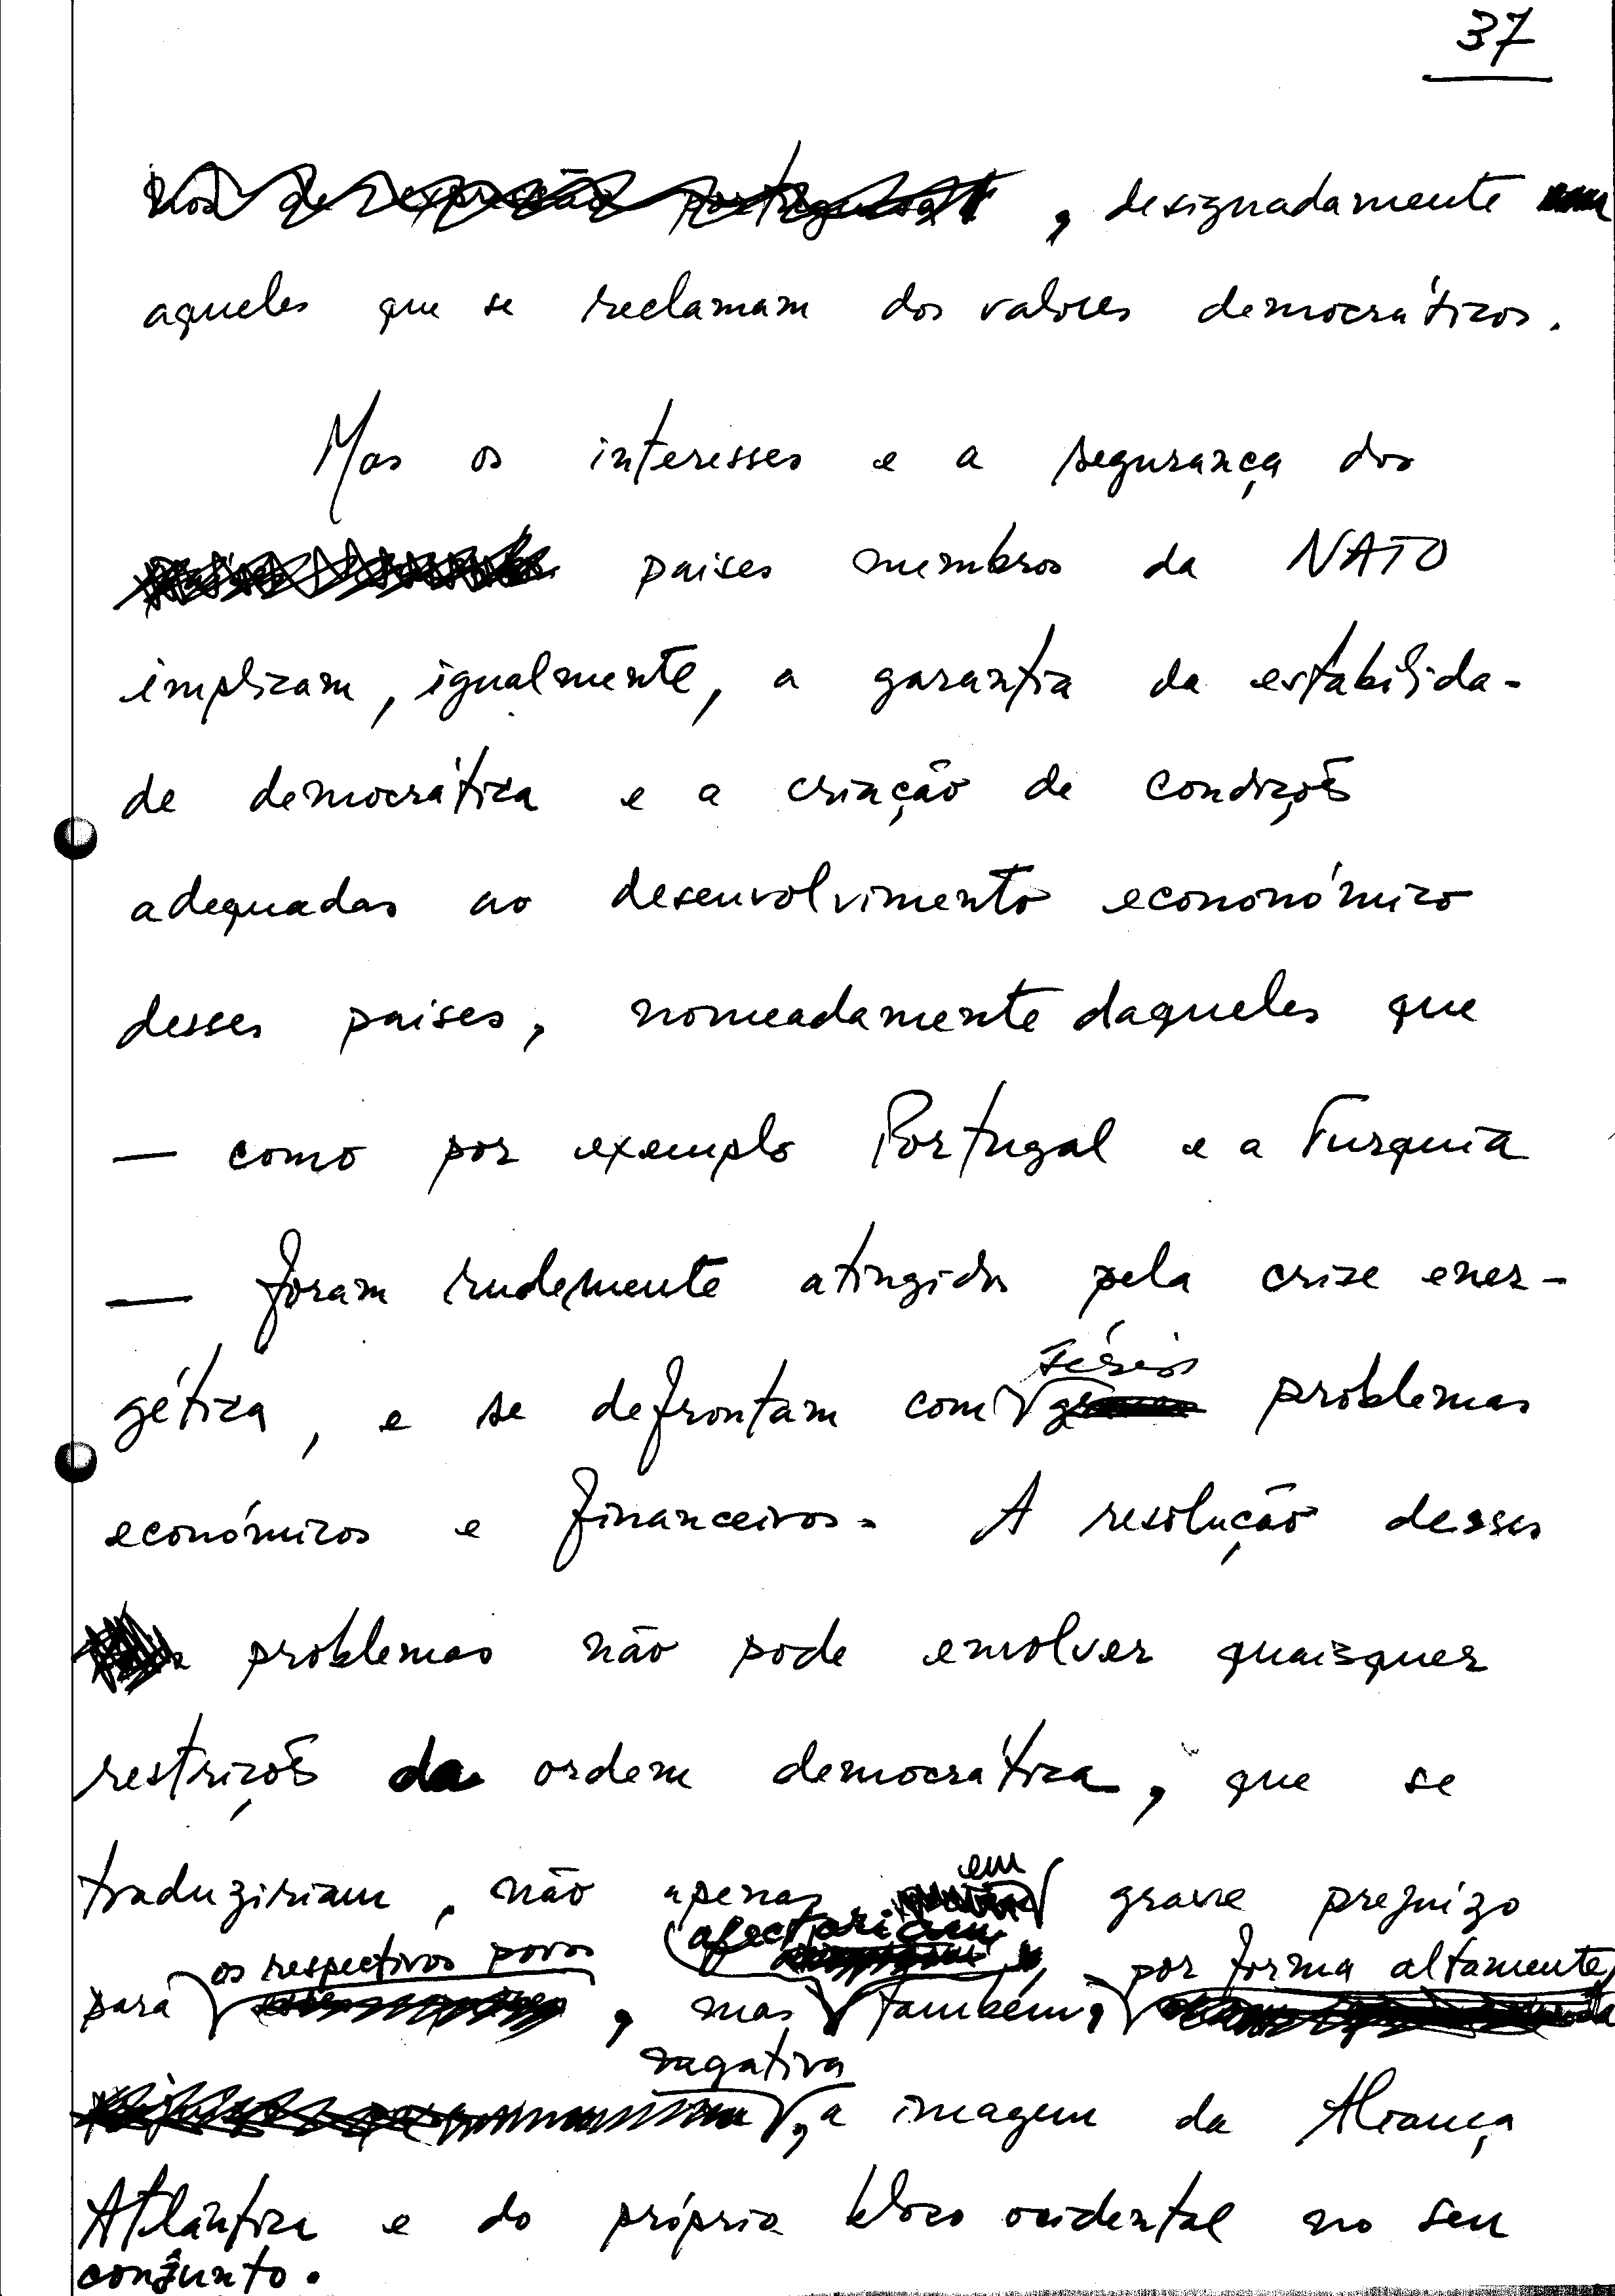 37
, designadamente
aqueles que se reclamam dos valores democráticos.
Mas os interesses e a segurança dos
paises membros da NATO
implicam, igualmente, a garantia da estabilida-
de democrática e a criação de condições
adequadas ao desenvolvimento econonómico
desses paises, nomeadamente daqueles que
— como por exemplo Portugal e a Turquia
— foram rudemente atingidos pela crise ener-
gética, e se defrontam com sérios problemas
económicos e financeiros. A resolução desses
problemas não pode envolver quaisquer
restrições da ordem democrática, que se
traduziriam, não apenas em grave prejuizo
para os respectivos povos, mas afectariam também, por forma altamente
nagativa, a imagem da Aliança
Atlântica e do próprio bloco ocidental no seu
conjunto.